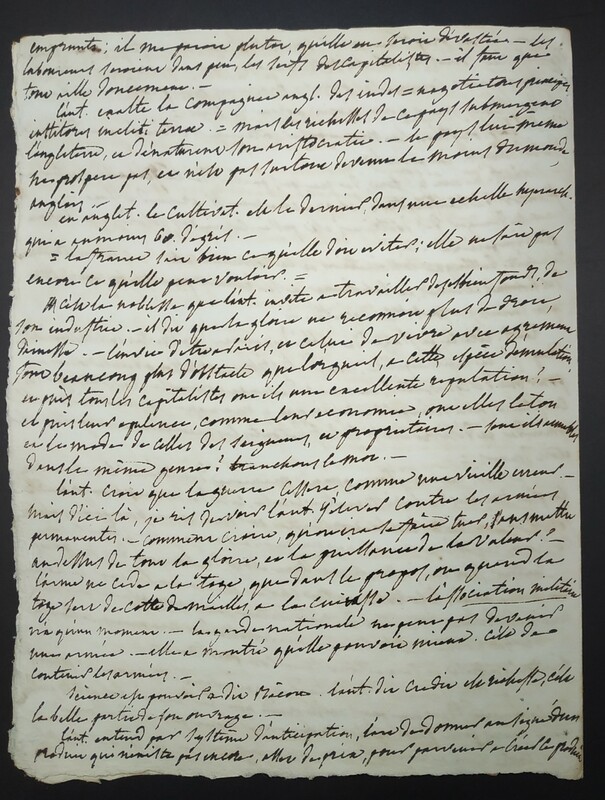 emprunts; il me paroit plutot, qu'elle en seroit dévastée. — les
laboureurs seroient dans peu, les serfs des capitalistes. — il faut que
tout aille doucement. —
l'aut. exalte la compagnie angl. des indes = negotiatores
institores terrae. = mais les richesses de ce pays submergent
l'angleterre, et dénaturent son aristocratie. — le pays lui même
ne prospere pas, et n'est pas surtout devenu le moins du monde
anglois. —
en anglet. le cultivat. est le dernier dans une echelle
qui a au moins 60. degrés. —
= la france sait bien ce qu'elle doit eviter; elle ne sait pas
encore ce qu'elle peut vouloir. =
c'est la noblesse que l'aut. invite a travailler de ses bien fonds, de
son industrie. — il dit que la gloire ne reconnoit plus de droit
d'ainesse. — l'envie d'etre a paris, et celui de vivre avec agrement
font beaucoup plus d'obstacle que l'orgueil, a cette espèce d'émulation
et puis tous les capitalistes ont ils une excellente reputation? —
et puis leur opulence, comme leur economie, ont elles le ton
et les modes de celles des seigneurs, et proprietaires. — sont ils
dans le même genre? tranchons le mot. —
l'aut. croit que la guerre cessera, comme une vieille erreur —
mais d'ici là, je ris de voir l'aut. s'elever contre les armées
permanentes. — comment croire, qu'on ira se faire tuer, sans mettre
au dessus de tout la gloire, et la puissance de la valeur? —
l'arme ne cede a la toge, que dans le propos, ou quand la
toge sert de cotte de mailles, a la cuirasse. — l'association militaire
n'a qu'un moment. — la garde nationale ne peut pas devenir
une armée. — elle a montré qu'elle pouvoit mieux. c'est de
contenir les armées. —
science est pouvoir a dit Bacon. l'aut. dit credit est richesse, c'est
la belle partie de son ouvrage. —
l'aut. entend par systême d'anticipation, l'art de donner au signe d'un
produit qui n'existe pas encore, assez de prix, pour parvenir a créer le produit